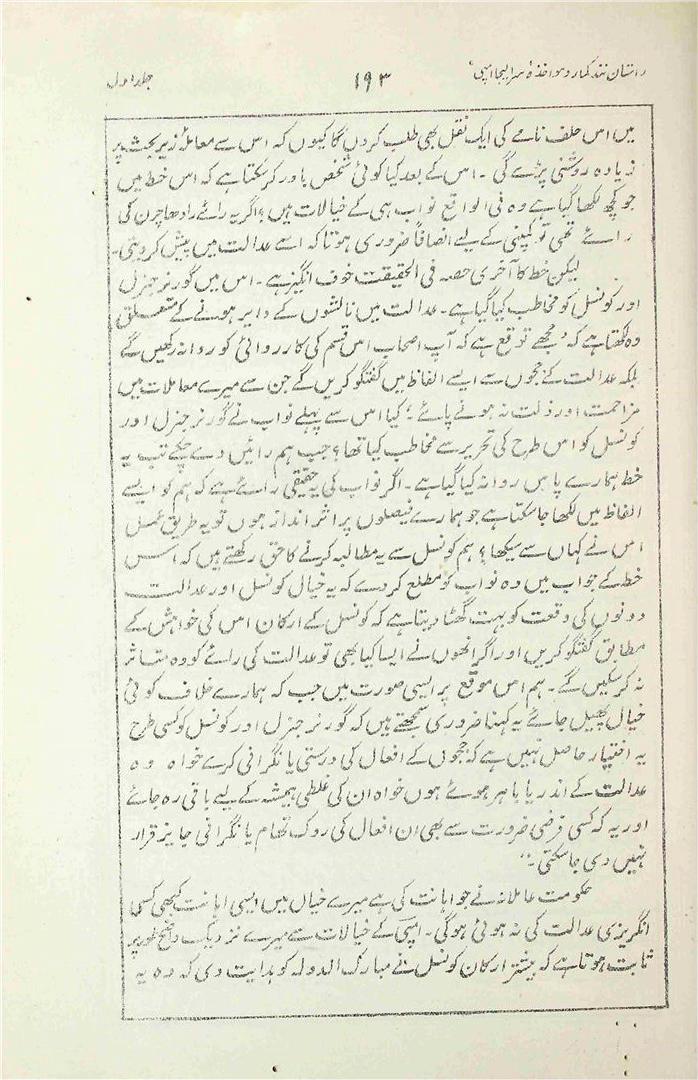 داستان نند کمار و مواخذۂ سر ایلیجا امپی
۱۹۳
جلد اول
میں اس حلف نامے کی ایک نقل بھی طلب کروں گا کیوں کہ اس سے معاملۂ زیر بحث پر
زیادہ روشنی پڑے گی ۔ اس کے بعد کیا کوئی شخص باور کر سکتا ہے کہ اس خط میں
جو کچھ لکھا گیا ہے وہ فی الواقع نواب ہی کے خیالات ہیں ؟ اگر یہ رائے رادھا چرن کی
رائے تھی تو کمپنی کے لیے انصافاً ضروری ہوتا کہ اسے عدالت میں پیش کر دیتی۔
لیکن خط کا آخری حصہ فی الحقیقت خوف انگیز ہے ۔ اس میں گورنر جنرل
اور کونسل کو مخاطب کیا گیا ہے۔ عدالت میں نالشوں کے دایر ہونے کے متعلق
وہ لکھتا ہے کہ ’مجھے توقع ہے کہ آپ اصحاب اس قسم کی کارروائی کو روا نہ رکھیں گے
بلکہ عدالت کے ججوں سے ایسے الفاظ میں گفتگو کریں گے جن سے میرے معاملات میں
مزاحمت اور ذلت نہ ہونے پائے‘ ؛ کیا اس سے پہلے نواب نے گورنر جنرل اور
کونسل کو اس طرح کی تحریر سے مخاطب کیا تھا ؟ جب ہم رائیں دے چکے تب یہ
خط ہمارے پاس روانہ کیا گیا ہے ۔ اگر نواب کی یہ حقیقی رائے ہے کہ ہم کو ایسے
الفاظ میں لکھا جا سکتا ہے جو ہمارے فیصلوں پر اثر انداز ہوں تو یہ طریق عمل
اس نے کہاں سے سیکھا ؟ ہم کونسل سے یہ مطالبہ کرنے کا حق رکھتے ہیں کہ اس
خط کے جواب میں وہ نواب کو مطلع کر دے کہ یہ خیال کونسل اور عدالت
دونوں کی وقعت کو بہت گھٹا دیتا ہے کہ کونسل کے ارکان اس کی خواہش کے
مطابق گفتگو کریں اور اگر انھوں نے ایسا کیا بھی تو عدالت کی رائے کو وہ متاثر
نہ کر سکیں گے ۔ ہم اس موقع پر ایسی صورت میں جب کہ ہمارے خلاف کوئی
خیال پھیل جائے یہ کہنا ضروری سمجھتے ہیں کہ گورنر جنرل اور کونسل کو کسی طرح
یہ اختیار حاصل نہیں ہے کہ ججوں کے افعال کی درستی یا نگرانی کرے خواہ وہ
عدالت کے اندر یا باہر ہوئے ہوں خواہ ان کی غلطی ہمیشہ کے لیے باقی رہ جائے
اور یہ کہ کسی فرضی ضرورت سے بھی ان افعال کی روک تھام یا نگرانی جایز قرار
نہیں دی جا سکتی ۔“
حکومت عاملانہ نے جو اہانت کی ہے میرے خیال میں ایسی اہانت کبھی کسی
انگریزی عدالت کی نہ ہوئی ہوگی ۔ امپی کے خیالات سے میرے نزدیک واضح طور پر
ثابت ہوتا ہے کہ بیشتر ارکان کونسل نے مبارک الدولہ کو ہدایت دی کہ وہ یہ